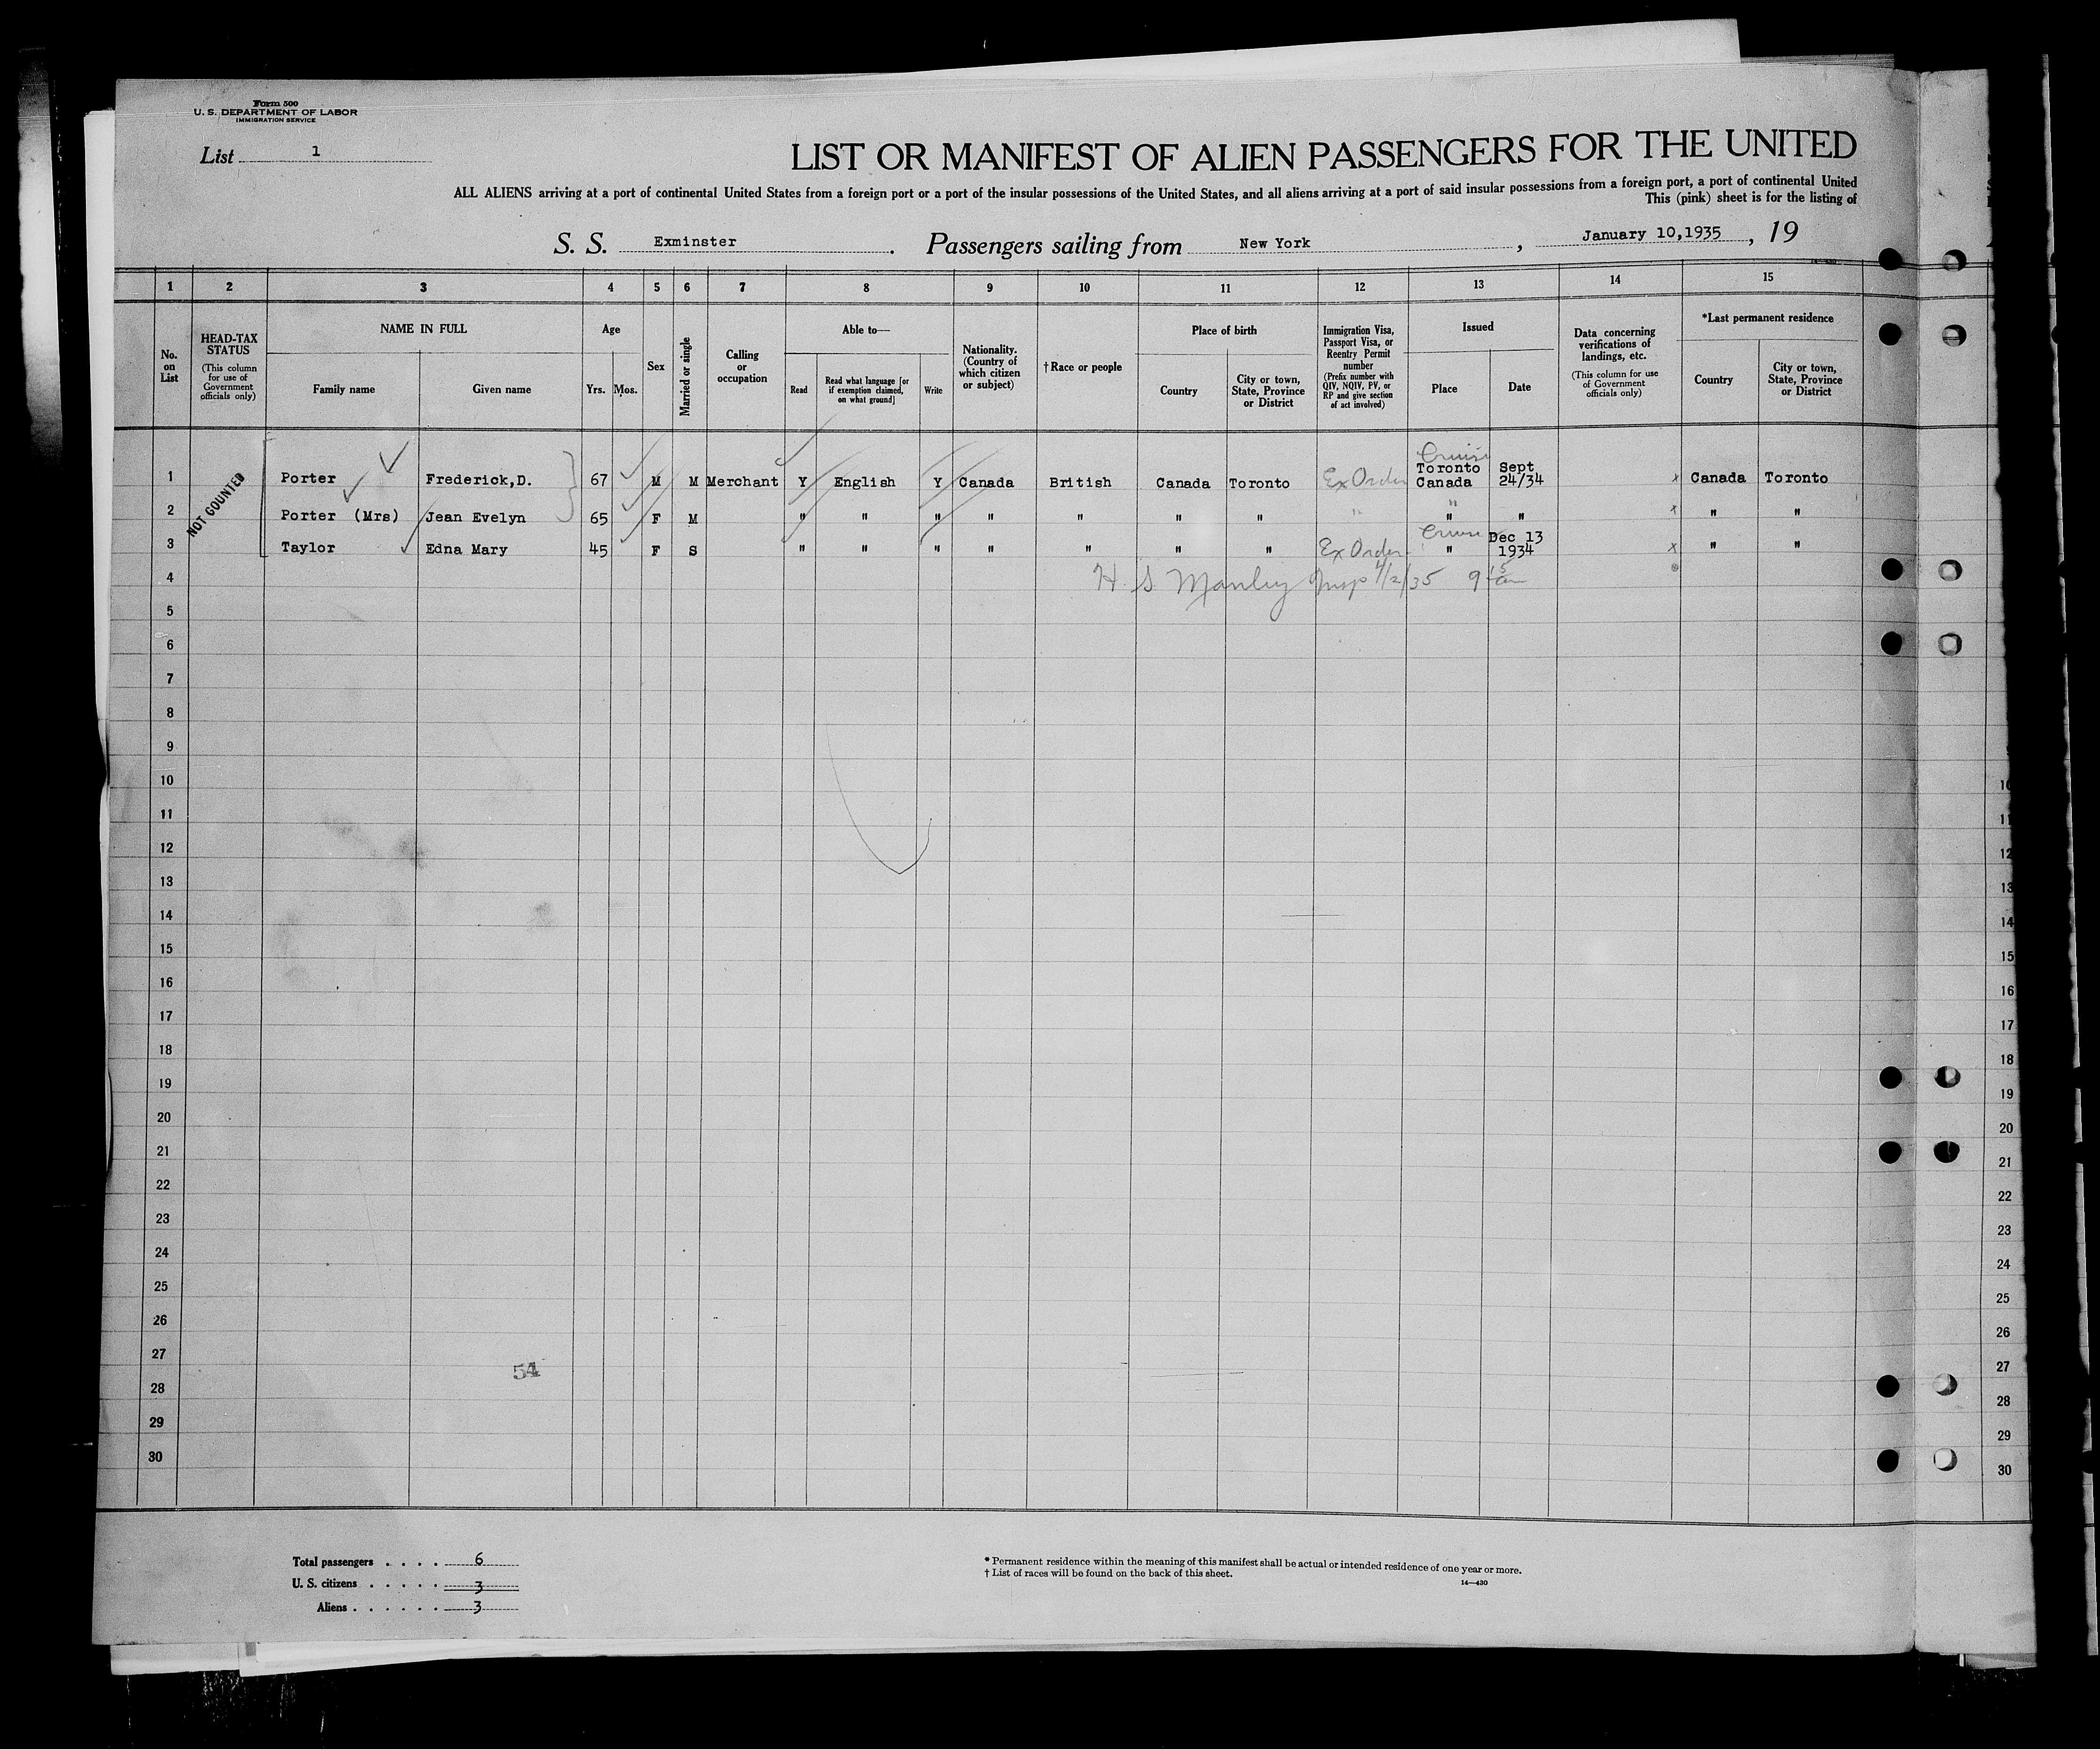 Form 500
U. S. DEPARTMENT OF LABOR
IMMIGRATION SERVICE
List 1
LIST OR MANIFEST OF ALIEN PASSENGERS FOR THE UNITED
ALL ALIENS arriving at a port of continental United States from a foreign port or a port of the insular possessions of the United States, and all aliens arriving at a port of said insular possessions from a foreign port, a port of continental United
This (pink) sheet is for the listing of
S. S. Exminster. Passengers sailing from New York, January 10,1935, 19
1 2 3 4 5 6 7 8 9 10 11 12 13 14 15
No. on List
HEAD-TAX STATUS (This column for use of Government officials only)
NAME IN FULL
Family name
Given name
Age
Yrs. Mos.
Sex
Married or single
Calling or occupation
Able to—
Read
Read what language [or if exemption claimed, on what ground]
Write
Nationality. (Country of which citizen or subject)
† Race or people
Place of birth
Country
City or town, State, Province or District
Immigration Visa, Passport Visa, or Reentry Permit number (Prefix number with QIV, NQIV, PV, or RP and give section of act involved)
Issued
Place
Date
Data concerning verifications of landings, etc. (This column for use of Government officials only)
*Last permanent residence
Country
City or town, State, Province or District
NOT COUNTED
Cruise
1 Porter Frederick,D. 67 M M Merchant Y English Y Canada British Canada Toronto Ex Order Toronto Canada Sept 24/34 x Canada Toronto
2 Porter (Mrs) Jean Evelyn 65 F M " " " " " " " " " " " x " "
Cruise
3 Taylor Edna Mary 45 F S " " " " " " " Ex Order " Dec 13 1934 x " "
4 H. S. Manley Insp 4/2/35 9 15 am
5
6
7
8
9
10 10
11 11
12 12
13 13
14 14
15 15
16 16
17 17
18 18
19 19
20 20
21 21
22 22
23 23
24 24
25 25
26 26
27 27
54
28 28
29 29
30 30
Total passengers . . . . 6
U. S. citizens . . . . . 3
Aliens . . . . . . 3
* Permanent residence within the meaning of this manifest shall be actual or intended residence of one year or more.
† List of races will be found on the back of this sheet.
14—430